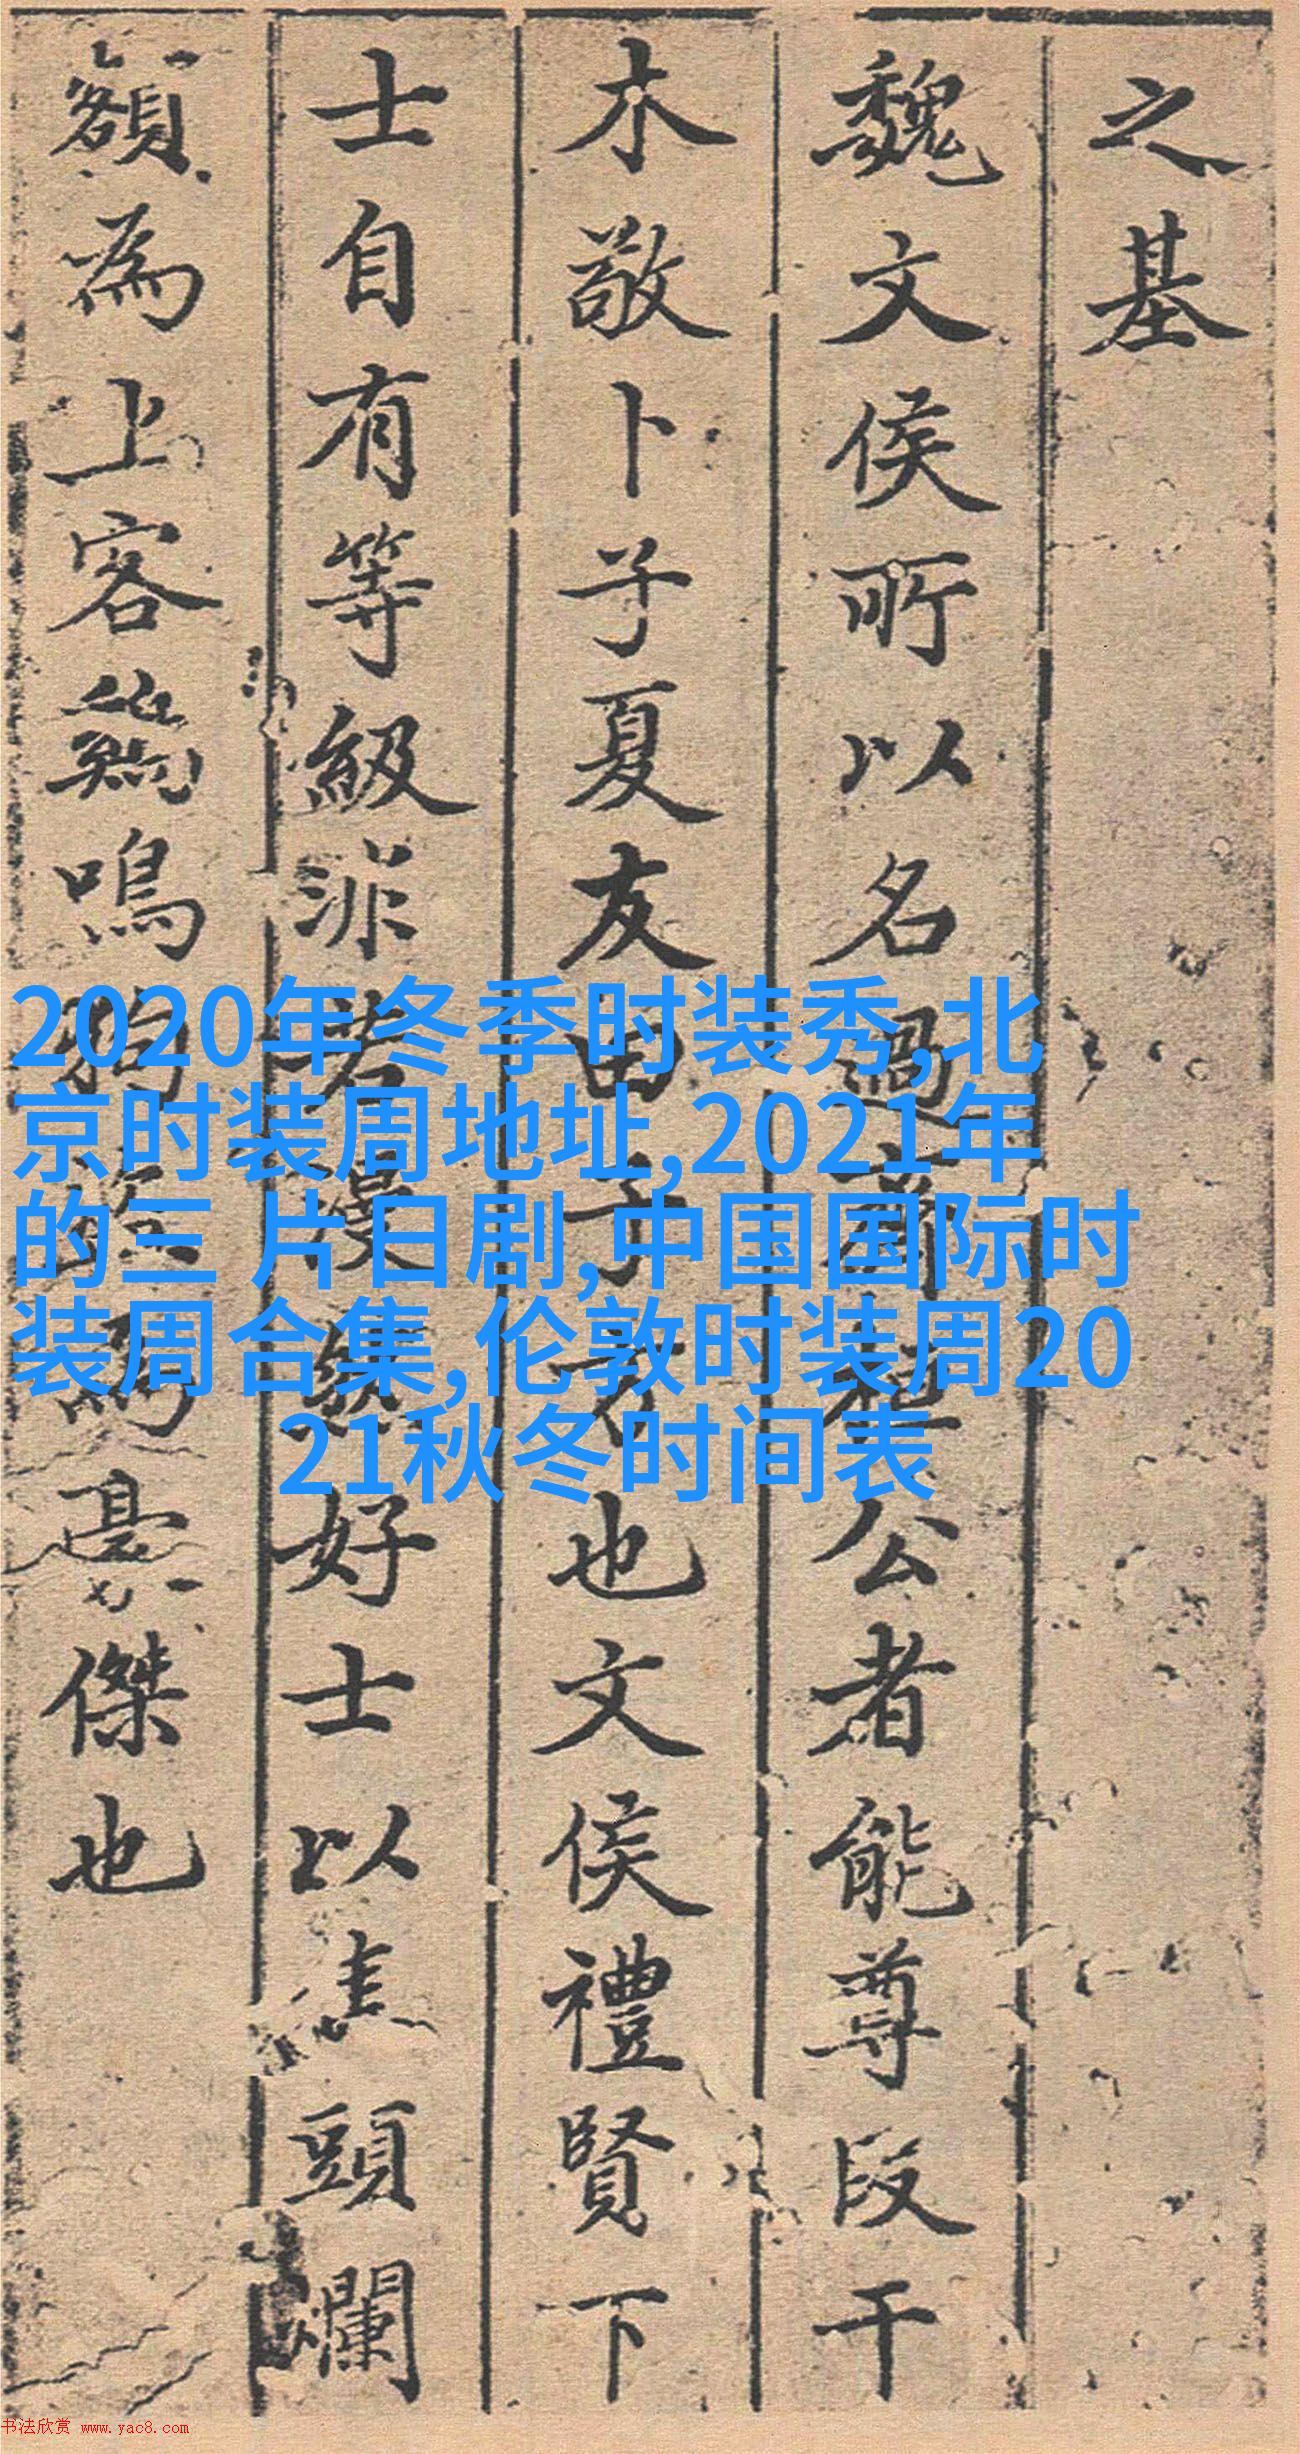 之基
魏文侯所以名過齊桓公者能尊段干
木敬卜子夏友田子方也文侯禮賢下
士自有等級非若漫好士以焦頭爛
額為上客鷄鳴狗盜為豪傑也
2020年冬季时装秀,北
京时装周地址,2021年
的三 片日剧,中国国际时
装周合集,伦敦时装周20
21秋冬时间表
书法欣赏 www.yac8.com